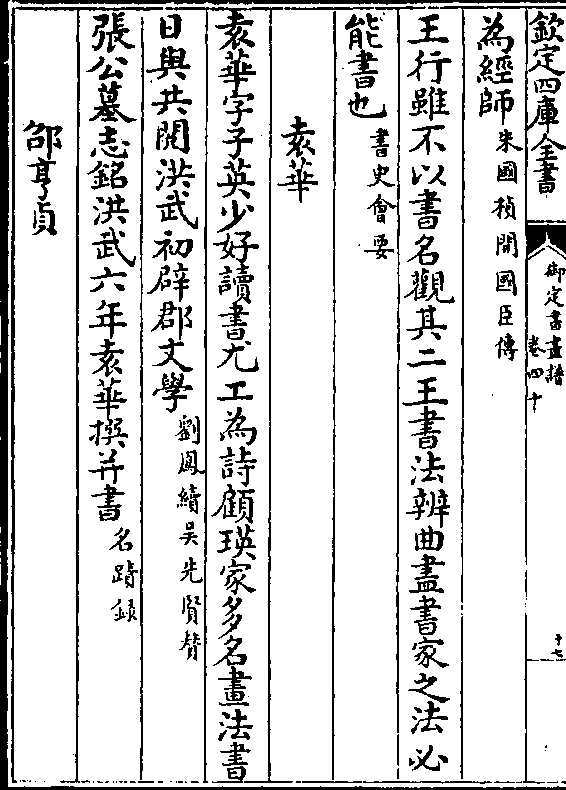 欽定四庫全書
御定書畫譜
卷四十
十七
為經師朱國楨開國臣傳
王行雖不以書名觀其二王書法辨曲盡書家之法必
能書也書史會要
袁華
袁華字子英少好讀書尤工為詩顧瑛家多名畫法書
日與共閱洪武初辟郡文學劉鳳續吳先賢贊
張公墓志銘洪武六年袁華撰并書名蹟錄
邵亨貞